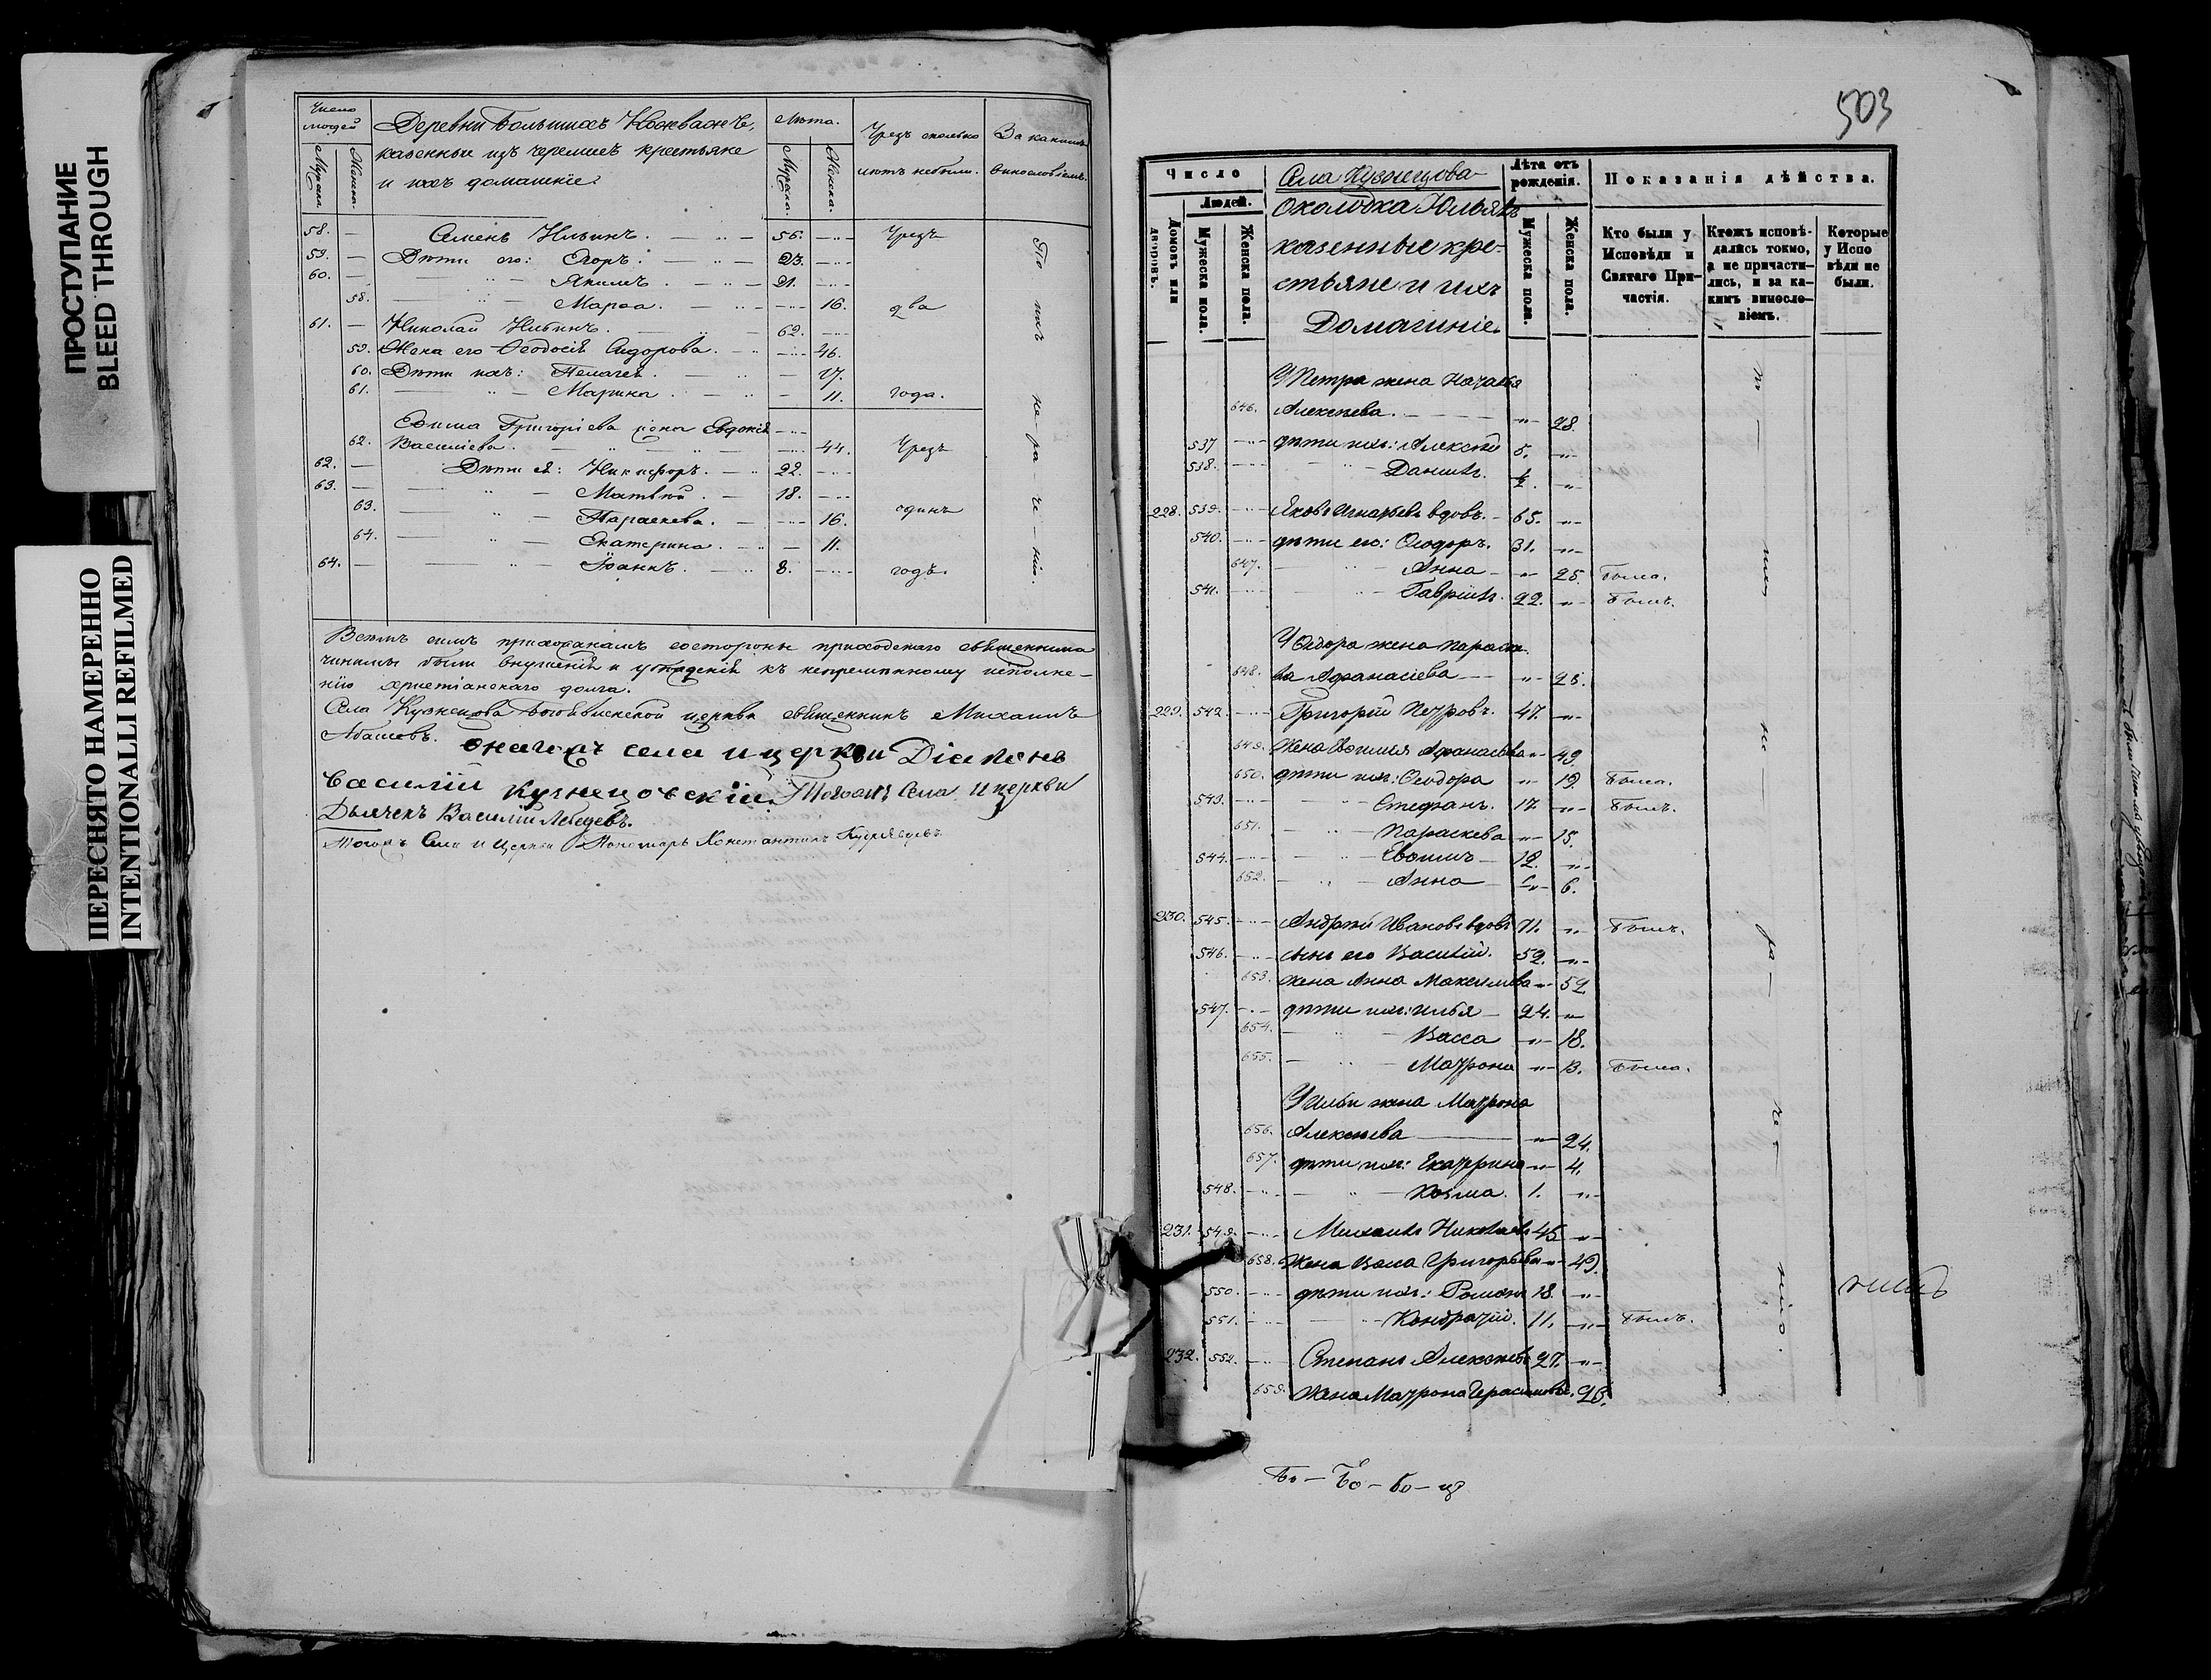 ПРОСТУПАНИЕ
BLEED THROUGH
ПЕРЕСНЯТО НАМЕРЕННО
INTENTIONALLI REFILMED
Число людей
Мужска. Женска.
Деревни Большихъ Нажважъ,
казенные изъ черемисъ крестьяне
и ихъ домашніе.
Лѣта.
Мужска. Женска.
Чрезъ сколько лѣтъ небыли.
За какимъ винословіемъ.
58. — Семенъ Ильинъ. 56.
59. — Дѣти его: Егоръ. 23.
60. — Якимъ. 21.
58. Марѳа. 16.
Чрезъ два года.
61. — Николай Ильинъ. 62.
59. Жена его Ѳеодосія Сидорова. 46.
60. Дѣти ихъ: Пелагея. 17.
61. Марина. 11.
Григоріева жена Евдокія
62. Василіева. 44.
62. — Дѣти ея: Никифоръ. 22.
63. — Матвѣй. 18.
63. Параскева. 16.
64. Екатерина. 11.
64. — Іоаннъ. 8.
Чрезъ одинъ годъ.
По ихъ не-ра-че-нію.
Всѣмъ симъ прихожанамъ состороны приходскаго священника
чинимы были внушенія и убѣжденія къ непремѣнному исполне-
нію христіанскаго долга.
Села Кузнецова Богоявленской церкви священникъ Михаилъ
Абашевъ. Онагожъ села и церкви Діаконъ
Василій Кузнецовскій. Тогожъ Села и церкви
Дьячекъ Василій Лебедевъ.
Тогожъ Села и Церкви Пономарь Константинъ Кудрявцевъ.
503
Число
Домовъ или дворовъ.
Людей.
Мужеска пола.
Женска пола.
Села Кузнецова
Околодка Юльялъ
казенные кре-
стьяне и ихъ
Домашніе.
Лѣта отъ рожденія.
Мужеска пола.
Женска пола.
Показанія дѣйства.
Кто были у Исповѣди и Святаго Причастія.
Ктожъ исповѣ-
дались токмо,
а не причасти-
лись, и за ка-
кимъ винословіемъ.
Которые у Исповѣди не были.
У Петра жена Наталья
646. Алексѣева. 28.
537 дѣти ихъ: Алексѣй 5.
538. Данилъ. ½.
228. 539. Яковъ Игнатьевъ вдовъ. 65.
540. дѣти его: Ѳеодоръ. 31.
647. Анна 25. Была.
541. Гавріилъ. 22. Былъ.
У Ѳедора жена Параске-
648. ва Афанасіева 28.
229. 542. Григорій Петровъ. 47.
649. Жена Евѳимія Афанасьева 49.
650. дѣти ихъ: Ѳеодора 19. Была.
543. Стефанъ. 17. Былъ.
651. Параскева 15.
544. Евѳимъ 12.
652. Анна 6.
230. 545. Андрей Ивановъ вдовъ 71. Былъ.
546. сынъ его Василій. 52.
653. жена Анна Максимова 52.
547. дѣти ихъ: Илья 24.
654. Васса 18.
655. Матрона 13. Была.
У Ильи жена Матрона
656. Алексѣева 24.
657. дѣти ихъ: Екатерина 4.
548. Козма. 1.
231. 549. Михаилъ Николаевъ 45
658. Жена Васса Григорьева 49.
550. дѣти ихъ: Романъ 18.
551. Кондратій. 11. Былъ.
232. 552. Степанъ Алексѣевъ 27.
659. Жена Матрона Герасимова. 28.
по ихъ не-ра-че-нію.